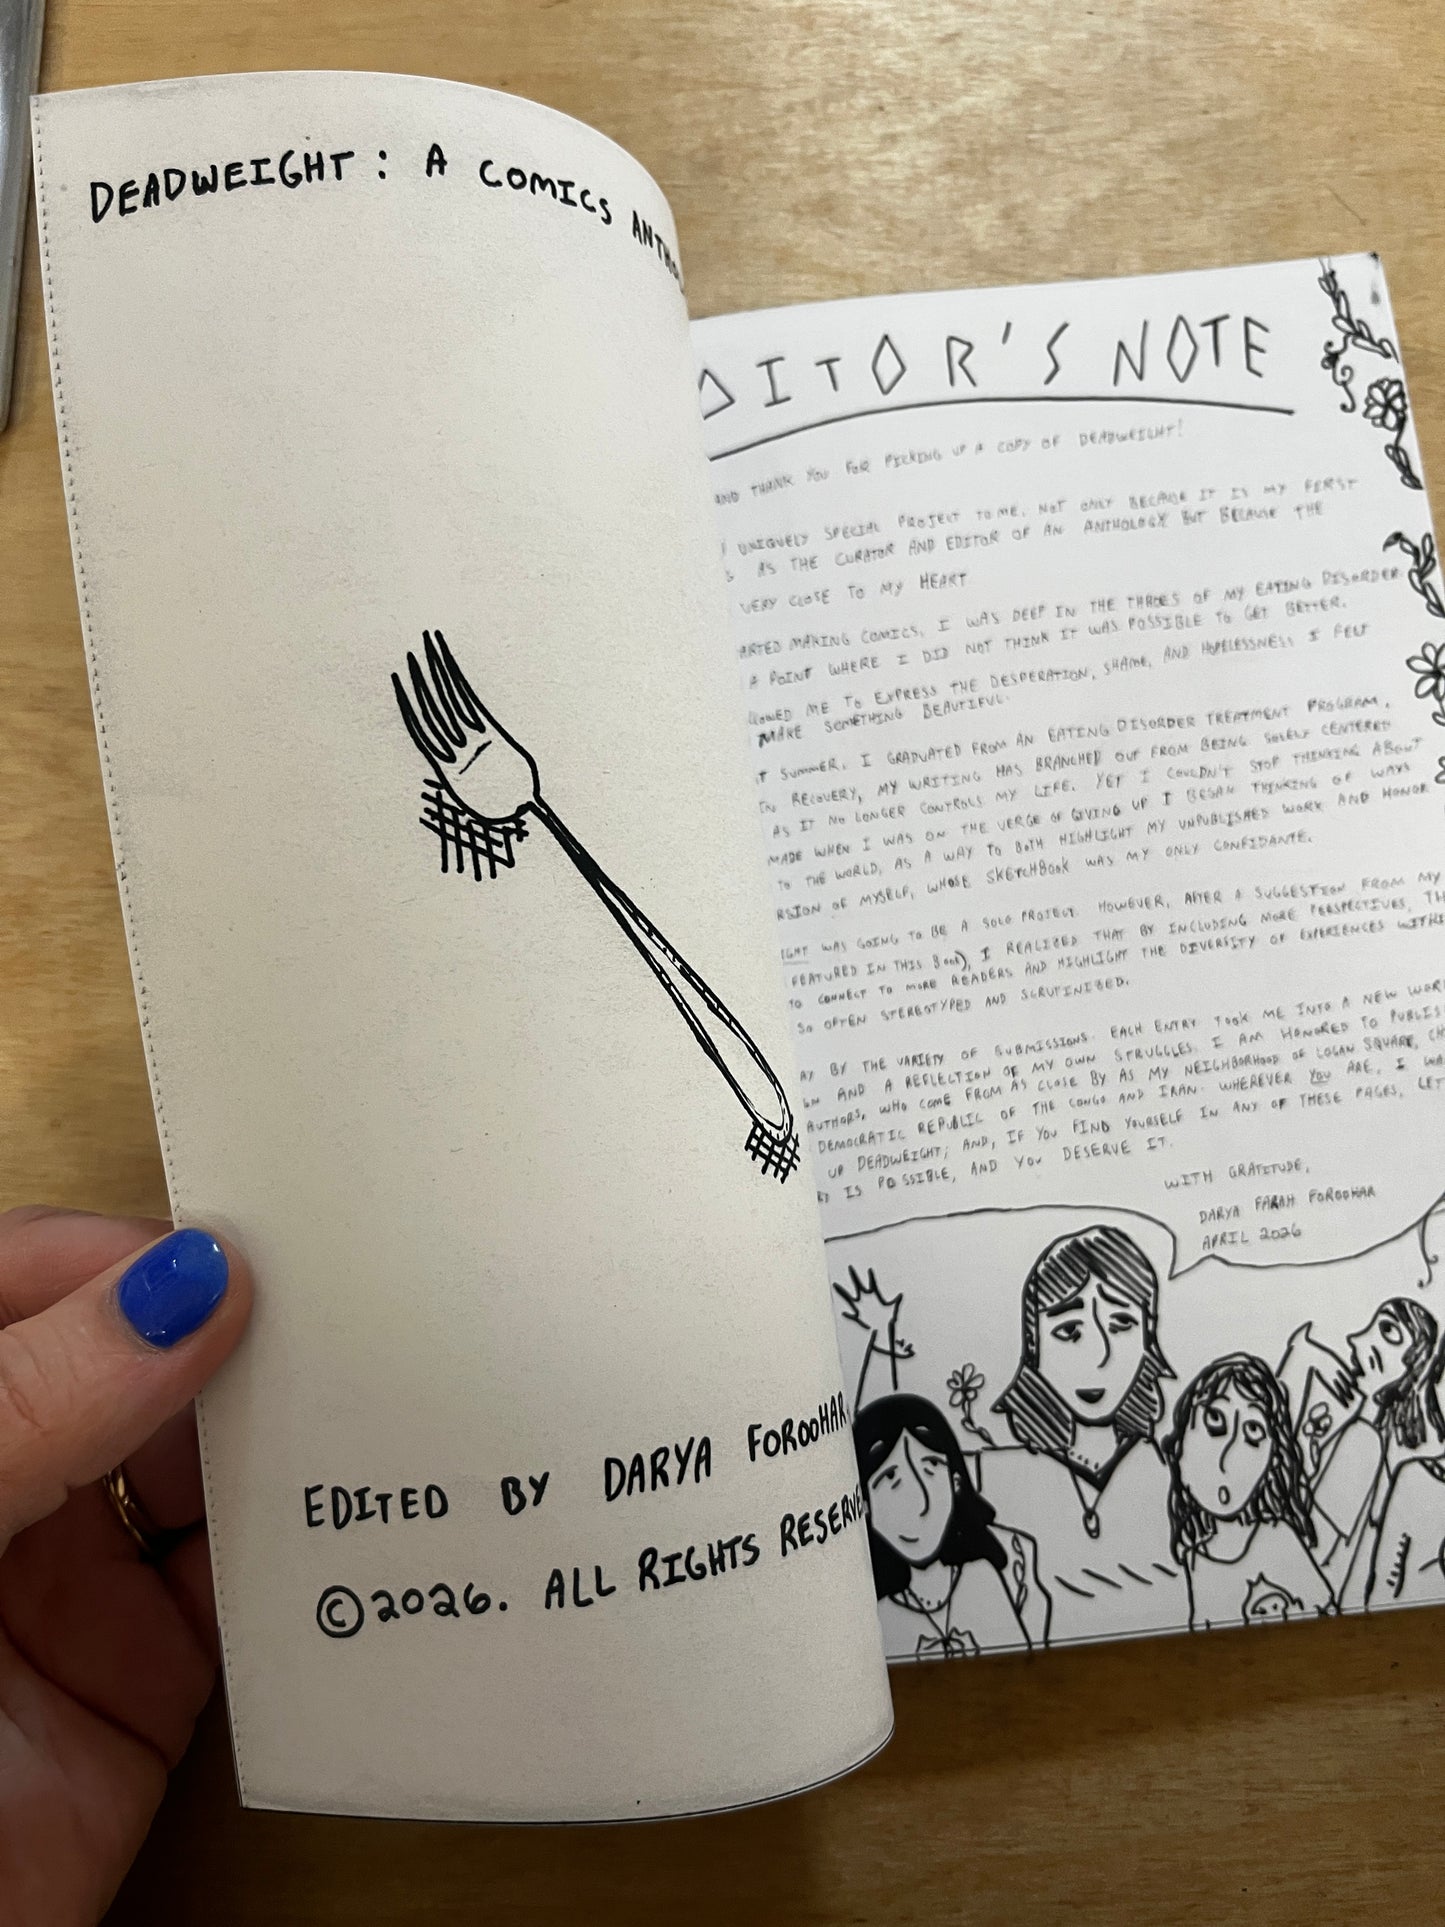 DEADWEIGHT: A COMICS ANTHO
EDITED BY DARYA FOROOHAR.
©2026. ALL RIGHTS RESERVE
DITOR'S NOTE
AND THANK YOU FOR PICKING UP A COPY OF DEADWEIGHT!
UNIQUELY SPECIAL PROJECT TO ME. NOT ONLY BECAUSE IT IS MY FIRST
AS THE CURATOR AND EDITOR OF AN ANTHOLOGY BUT BECAUSE THE
VERY CLOSE TO MY HEART
ARTED MAKING COMICS, I WAS DEEP IN THE THROES OF MY EATING DISORDER.
A POINT WHERE I DID NOT THINK IT WAS POSSIBLE TO GET BETTER.
LLOWED ME TO EXPRESS THE DESPERATION, SHAME, AND HOPELESSNESS I FELT
MAKE SOMETHING BEAUTIFUL.
T SUMMER, I GRADUATED FROM AN EATING DISORDER TREATMENT PROGRAM.
IN RECOVERY, MY WRITING HAS BRANCHED OUT FROM BEING SOLELY CENTERED
AS IT NO LONGER CONTROLS MY LIFE. YET I COULDN'T STOP THINKING ABOUT
MADE WHEN I WAS ON THE VERGE OF GIVING UP. I BEGAN THINKING OF WAYS
TO THE WORLD, AS A WAY TO BOTH HIGHLIGHT MY UNPUBLISHED WORK AND HONOR
RSION OF MYSELF, WHOSE SKETCHBOOK WAS MY ONLY CONFIDANTE.
IGHT WAS GOING TO BE A SOLO PROJECT. HOWEVER, AFTER A SUGGESTION FROM MY
FEATURED IN THIS BOOK), I REALIZED THAT BY INCLUDING MORE PERSPECTIVES, TH
TO CONNECT TO MORE READERS AND HIGHLIGHT THE DIVERSITY OF EXPERIENCES WITHI
SO OFTEN STEREOTYPED AND SCRUTINIZED.
AY BY THE VARIETY OF SUBMISSIONS. EACH ENTRY TOOK ME INTO A NEW WORL
AND A REFLECTION OF MY OWN STRUGGLES. I AM HONORED TO PUBLIS
AUTHORS, WHO COME FROM AS CLOSE BY AS MY NEIGHBORHOOD OF LOGAN SQUARE, CH
DEMOCRATIC REPUBLIC OF THE CONGO AND IRAN. WHEREVER YOU ARE, I WA
UP DEADWEIGHT; AND, IF YOU FIND YOURSELF IN ANY OF THESE PAGES, LET
IS POSSIBLE, AND YOU DESERVE IT.
WITH GRATITUDE,
DARYA FARAH FOROOHAR
APRIL 2026